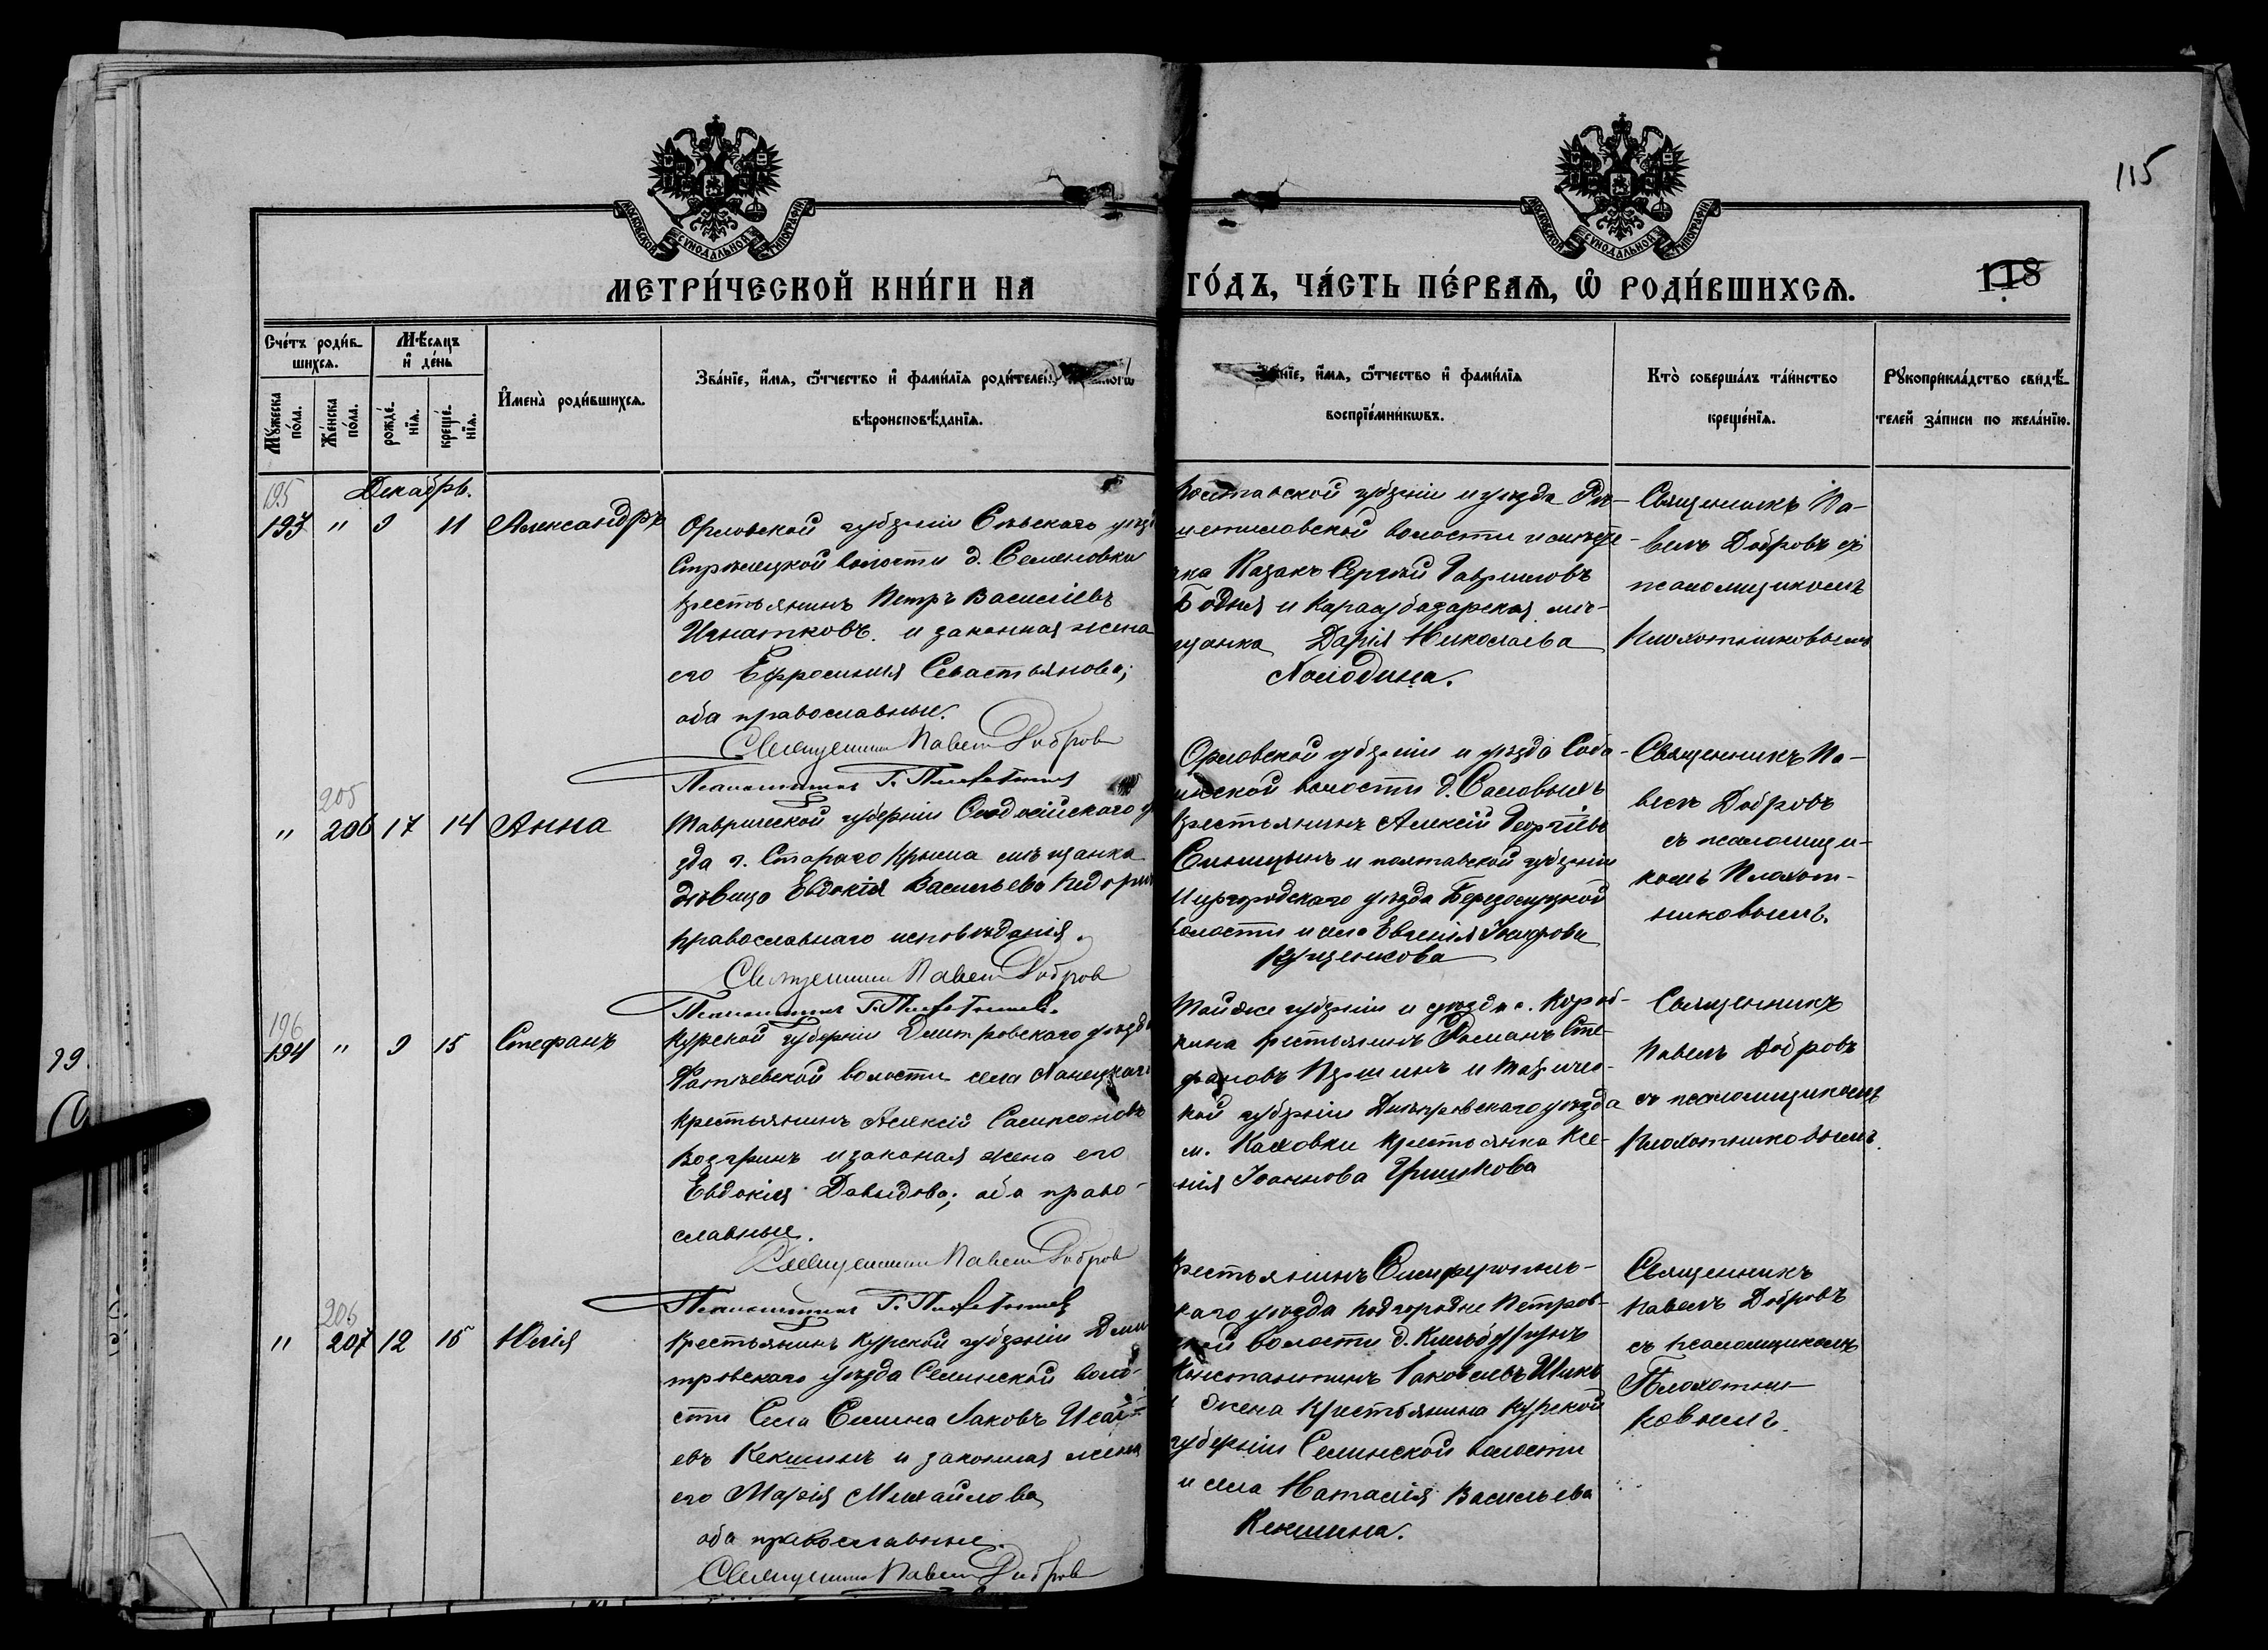 115
МОСКОВСКОЙ СѴНОДАЛЬНОЙ ТИПОГРАФІИ
МОСКОВСКОЙ СѴНОДАЛЬНОЙ ТИПОГРАФІИ
МЕТРИ́ЧЕСКОЙ КНИ́ГИ НА ГО́ДЪ, ЧА́СТЬ ПЕ́РВАѦ, Ѡ҆ РОДИ́ВШИХСѦ.
118
Сче́тъ роди́в-
шихсѧ.
Мѣ́сѧцъ
и҆ де́нь
Мꙋ́жеска
по́ла.
Же́нска
по́ла.
рожде́-
нїѧ.
креще́-
нїѧ.
И҆мена̀ роди́вшихсѧ.
Зва́нїе, и҆́мѧ, ѻ҆́тчество и҆ фами́лїѧ роди́телей
вѣроисповѣ́данїѧ.
и҆́мѧ, ѻ҆́тчество и҆ фами́лїѧ
воспрїе́мникѡвъ.
Кто̀ соверша́лъ та́инство
креще́нїѧ.
Рꙋкоприкла́дство свидѣ́-
телей за́писи по жела́нїю.
Декабрь.
195
193 " 9 11 Александръ
Орловской губерніи Сѣвскаго уѣз
Стрѣлецкой волости д. Семеновки
крестьянинъ Петръ Василіевъ
Игнатковъ и законная жена
его Ефросинія Севастьянова;
оба православные.
Священникъ Павелъ Добров
Псаломщикъ Г. Плохотников
Полтавской губерніи и уѣзда Рѣ-
шетиловской волости и мѣсте-
чка Казакъ Сергѣй Гавриловъ
Бодня и Карасубазарская мѣ-
щанка Дарія Николаева
Холодина.
Священникъ Па-
велъ Добровъ съ
псаломщикомъ
Плохотниковымъ
205
" 206 17 14 Анна
Таврической губерніи Ѳеодосійскаго у
зда г. Стараго Крыма мѣщанка
дѣвица Евдокія Васильева
православнаго исповѣданія.
Священникъ Павелъ Добров
Псаломщикъ Г. Плохотников.
Орловской губерніи и уѣзда
волости д.
крестьянинъ Алексій Георгіевъ
и полтавской губерніи
Миргородскаго уѣзда
волости и села Евгенія
Кущенкова
Священникъ Па-
велъ Добровъ
съ псаломщи-
комъ Плохот-
никовымъ.
196
194 " 9 15 Стефанъ
Курской губерніи Дмитровскаго уѣзда
волости села
крестьянинъ Алексій Сампсоновъ
и законая жена его
Евдокія Давыдова; оба право-
славные.
Священникъ Павелъ Добров
Псаломщикъ Г. Плохотников
Тойже губерніи и уѣзда с. Короб-
кина крестьянинъ Романъ Сте-
фановъ и Тавричес-
кой губерніи Днѣпровскаго уѣзда
м. Каховки крестьянка Ксе-
нія Іоаннова Гришкова
Священникъ
Павелъ Добровъ
съ псаломщикомъ
Плохотниковымъ.
206
" 207 12 15 Юлія
Крестьянинъ Курской губерніи Дми
тровскаго уѣзда Селинской воло-
сти Села Селина Іаковъ Исаі-
евъ Кекшинъ и законная жена
его Марія Михайлова
оба православные.
Священникъ Павелъ Добров
Крестьянинъ Симферополь-
скаго уѣзда Подгородне Петров-
ской волости д.
Константинъ Іаковлевъ
и жена Крестьянина Курской
губерніи Селинской волости
и села Наталія Васильева
Кекшина.
Священникъ
Павелъ Добровъ
съ псаломщикомъ
Плохотни-
ковымъ.
19.